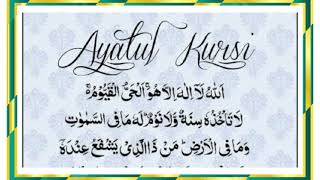 Ayatul Kursi
اَللّٰهُ لَآ اِلٰهَ اِلَّا هُوَۚ اَلْحَیُّ الْقَیُّوْمُ ۚ
لَا تَاْخُذُهٗ سِنَةٌ وَّلَا نَوْمٌؕ لَهٗ مَا فِی السَّمٰوٰتِ
وَمَا فِی الْاَرْضِؕ مَنْ ذَا الَّذِیْ یَشْفَعُ عِنْدَهٗۤ